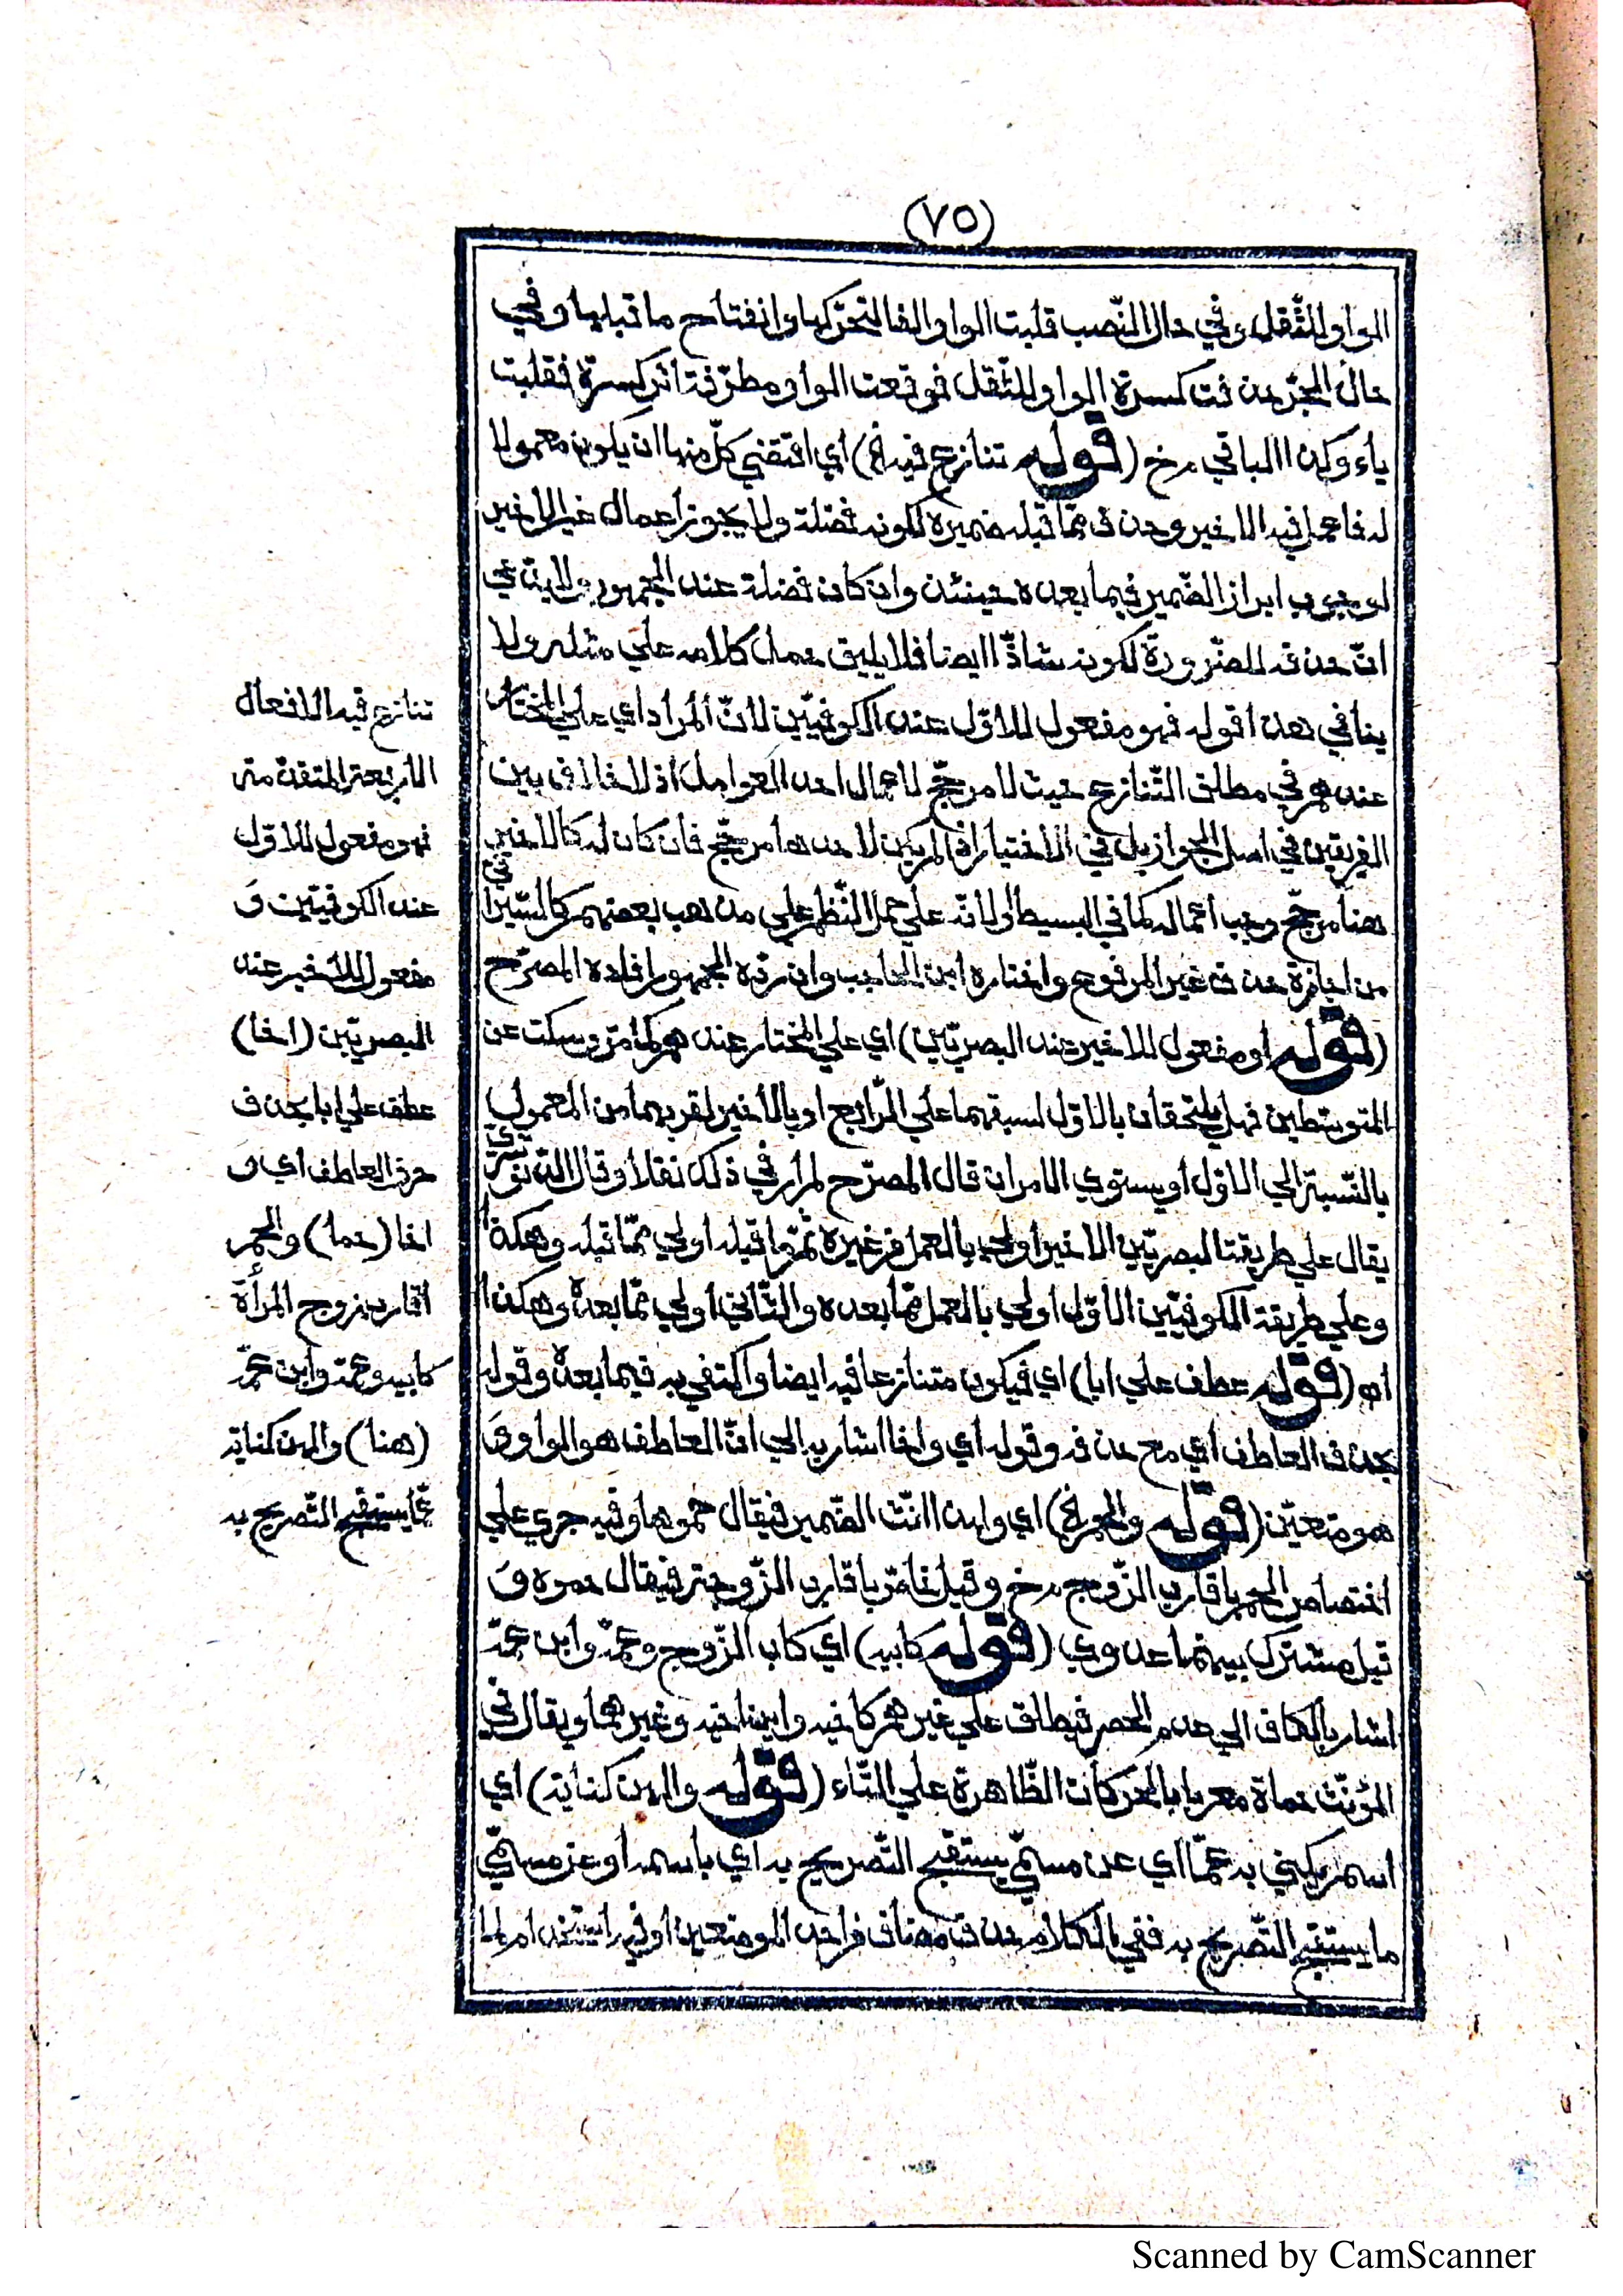 (٧٥)
الواو للثّقل وفي حال النّصب قلبت الواو الفا لتحرّكها وانفتاح ما قبلها وفي
حال الجرّ حذفت كسرة الواو للثّقل فوقعت الواو مطرّفة اثر كسرة فقلبت
ياء وكذا الباقي مرخ (قوله تنازع فيه الخ) أي اقتضي كلّ منها ان يكون معمولا
له فاعمل فيه الاخير وحذف ممّا قبله ضميره لكونه فضلة ولا يجوز اعمال غير الاخير
لوجوب ابراز الضّمير فيما بعده حينئذ وان كان فضلة عند الجمهور ولا يدّعي
انّ حذفه للضّرورة لكونه شاذّا ايضا فلا يليق حمل كلامه علي مثله ولا
ينافي هذا قوله فهو مفعول للاوّل عند الكوفيّين لانّ المراد اي علي المختار
عندهم في مطلق التّنازع حيث لا مرجّح لاعمال احد العوامل اذ لا خلاف بين
الفريقين في اصل الجواز بل في الاختيار ان لم يكن لاحدها مرجّح فان كان له كالاخير
هنا مرجّح وجب اعماله كما في البسيط او لانّه علي حمل النّظم علي مذهب بعضهم كالسّيرافي
من اجازة حذف غير المرفوع واختاره ابن الحاجب وان ردّه الجمهور افاده المصرّح
(قوله أو مفعول للاخير عند البصريّين) اي علي المختار عندهم كما مرّ وسكت عن
المتوسّطين فهل يلتحقان بالاوّل لسبقهما علي الرّابع او بالأخير لقربهما من المعمول
بالنّسبة الي الاوّل أو يستوي الامران قال المصرّح لم أر في ذلك نقلا وقال الدّنوشري
يقال علي طريقة البصريّين الاخير أولي بالعمل من غيره ثمّ ما قبله أولي ممّا قبله وهكذا
وعلي طريقة الكوفيّين الأوّل اولي بالعمل ممّا بعده والثّاني أولي ممّا بعده وهكذا
اه (قوله عطف علي ابا) اي فيكون متنازعا فيه ايضا واكتفي به فيما بعده وقوله
بحذف العاطف أي مع حذفه وقوله أي واخا اشار به الي انّ العاطف هو الواو وَ
هو متعيّن (قوله والحم الخ) اي ولهذا انّث الضّمير فيقال حموها وفيه جري علي
اختصاص الحم باقارب الزّوج مرخ وقيل خاصّ باقارب الزّوجة فيقال حموه وَ
قيل مشترك بينهما عدوي (قوله كابيه) اي كاب الزّوج وعمّه وابن عمّه
اشار بالكاف الي عدم الحصر فيطلق علي غيرهم كاخيه وابن اخيه وغيرهما ويقال في
المؤنّث حماة معربا بالحركات الظّاهرة علي التّاء (قوله والهن كناية) اي
اسم يكني به عمّا اي عن مسمّي يستقبح التّصريح به اي باسمه أو عن مسمّي
ما يستقبح التّصريح به ففي الكلام حذف مضاف في احد الموضعين أو فيه استخدام لما
تنازع فيه الافعال
الأربعة المتقدّمة
فهو مفعول للاوّل
عند الكوفيّين وَ
مفعول للأخير عند
البصريّين (اخا)
عطف علي ابا بحذف
حرف العاطف أي وَ
اخا (حما) والحم
اقارب زوج المرأة
كابيه وعمّه وابن عمّه
(هنا) والهن كناية
عمّا يستقبح التّصريح به
Scanned by CamScanner